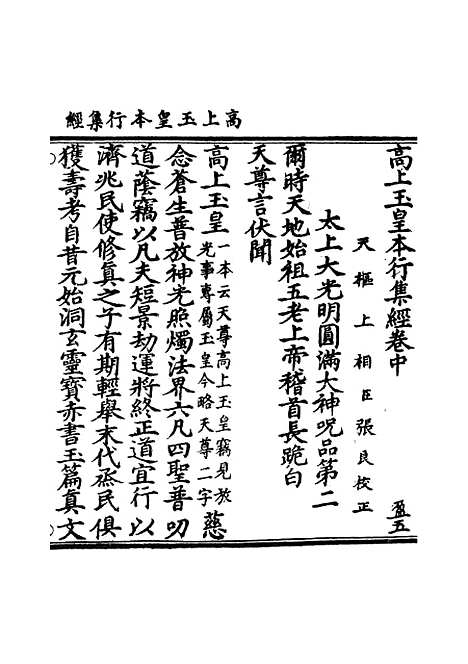 高上玉皇本行集經
高上玉皇本行集經卷中 盈五
天樞上相臣張良校正
太上大光明圓滿大神呪品第二
爾時天地始祖五老上帝稽首長跪白
天尊言伏聞
高上玉皇一本云天尊高上玉皇竊見放光事專屬玉皇今略天尊二字慈
念蒼生普放神光照燭法界六凡四聖普叨
道蔭竊以凡夫短景劫運將終正道宜行以
濟兆民使修真之子有期輕舉末代烝民俱
獲壽考自昔元始洞玄靈寶赤書玉篇真文